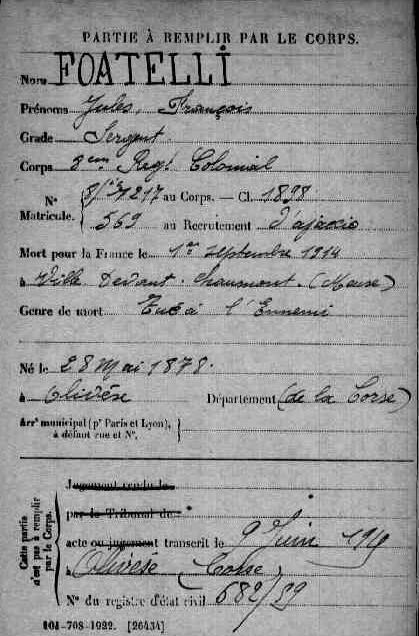 PARTIE À REMPLIR PAR LE CORPS.
Nom FOATELLI
Prénoms Jules, François
Grade Sergent.
Corps 8em Regt. Colonial
N° Matricule. 217 au Corps. — Cl. 1898
569 au Recrutement d'ajaccio
Mort pour la France le 1er septembre 1914
à Ville Devant Chaumont (Meuse)
Genre de mort Tué à l'Ennemi
Né le 28 Mai 1878.
à Olivèse Département (de la Corse)
Arrt municipal (pr Paris et Lyon),
à défaut rue et N°.
Cette partie n'est pas à remplir par le Corps.
Jugement rendu le
par le Tribunal de
acte ou jugement transcrit le 9 Juin 1919
à Olivèse (Corse)
N° du registre d'état civil 682/39
101-708-1922. [26434]